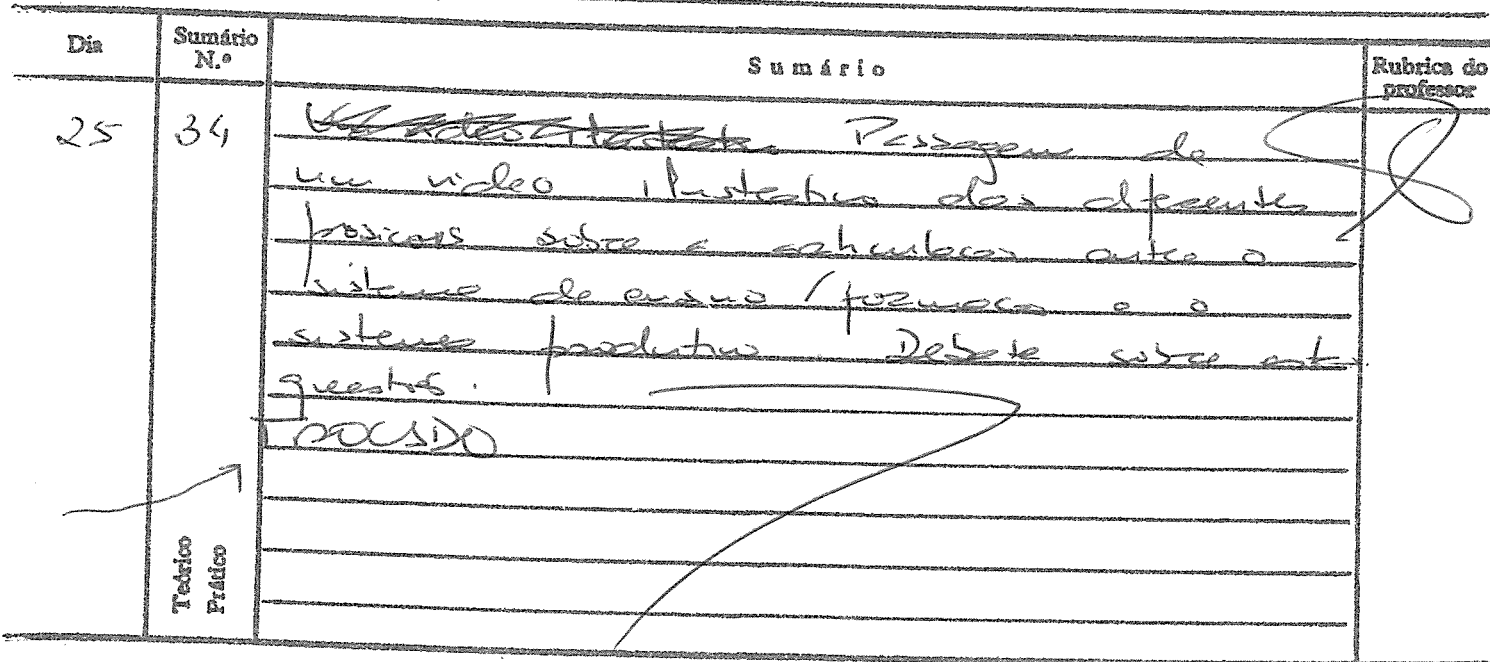 Dia Sumário N.º Sumário Rubrica do professor
25 34 Passagem de
um video ilustrativo das diferentes
posições sobre a articulação entre o
sistema de ensino / formação e o
sistema produtivo Debate sobre esta
questão.
Teórico
Prático